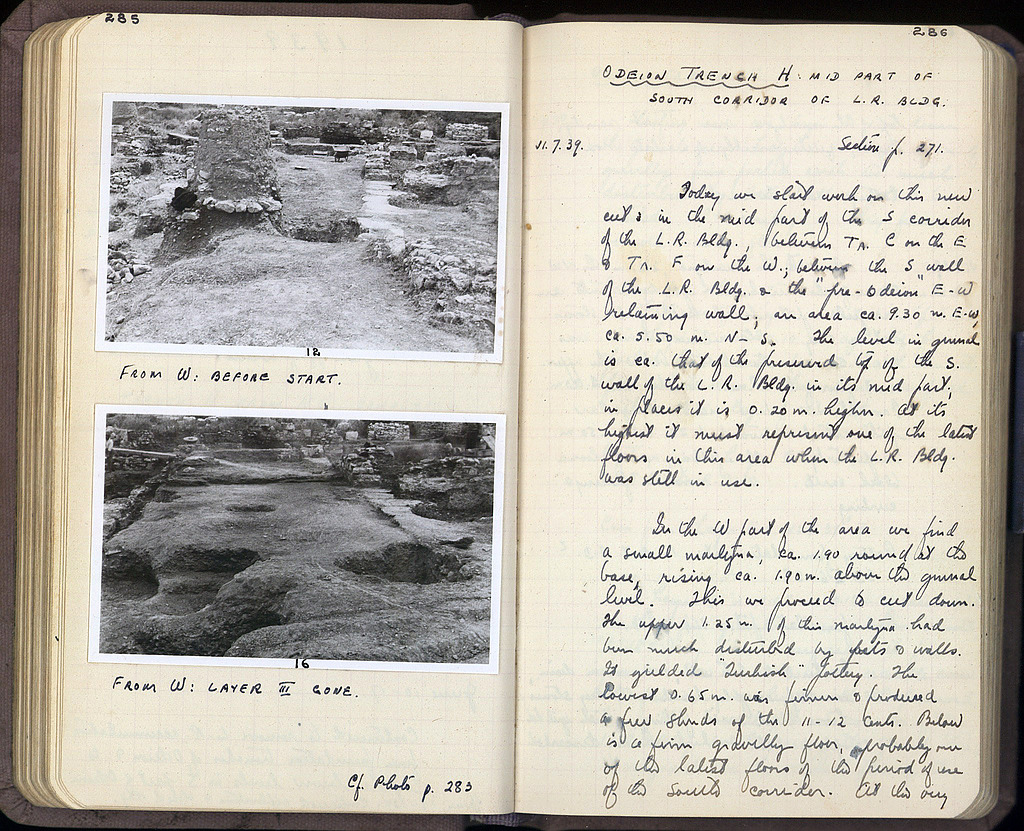 285
12
FROM W: BEFORE START.
16
FROM W: LAYER III GONE.
Cf. Photo p. 283
286
ODEION TRENCH H: MID PART OF
SOUTH CORRIDOR OF L.R. BLDG.
11.7.39. Section p. 271.
Today we start work on this new
cut: in the mid part of the S corridor
of the L.R. Bldg., between Tr. C on the E
& Tr. F on the W.; between the S wall
of the L.R. Bldg. & the "pre-Odeion" E-W
retaining wall; an area ca. 9.30 m. E-W,
ca. 5.50 m. N-S. The level in general
is ca. that of the preserved top of the S.
wall of the L.R. Bldg. in its mid part;
in places it is 0.20 m. higher. At its
highest it must represent one of the latest
floors in this area when the L.R. Bldg.
was still in use.
In the W part of the area we find
a small martyra, ca. 1.90 round at the
base, rising ca. 1.90 m. above the general
level. This we proceed to cut down.
The upper 1.25 m. of this martyra had
been much disturbed by pits & walls.
It yielded "Turkish" pottery. The
lowest 0.65 m. was firmer & produced
a few sherds of the 11-12 cents. Below
is a firm gravelly floor, probably one
of the latest floors of the period of use
of the south corridor. At the very